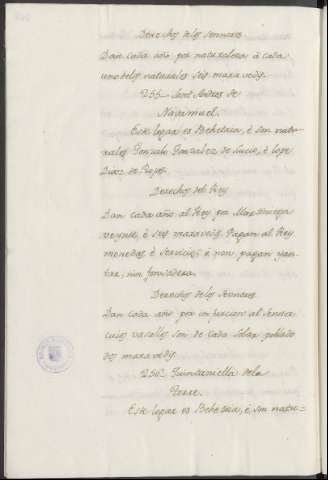 Derechos delos Sennores
Dan cada año por naturaleza à cada
uno delos naturales seis maravedis.
255. Sant Andres de
Nagamuel.
Este logar es Behetria, è son natu-
rales Gonzalo Gonzalez de Lucio, è Lope
Diaz de Rojas.
Derechos del Rey
Dan cada año al Rey por Martiniega
veynte, è seis maravedis. Pagan al Rey
monedas è servicios, è non pagan yan-
tar, nin fonsadera.
Derechos delos Sennores
Dan cada año por infurcion al Sennor
cuios vasallos son de cada solar poblado
dos maravedis.
256. Quintaniella dela
Torre.
Este logar es Behetria, è son natu-